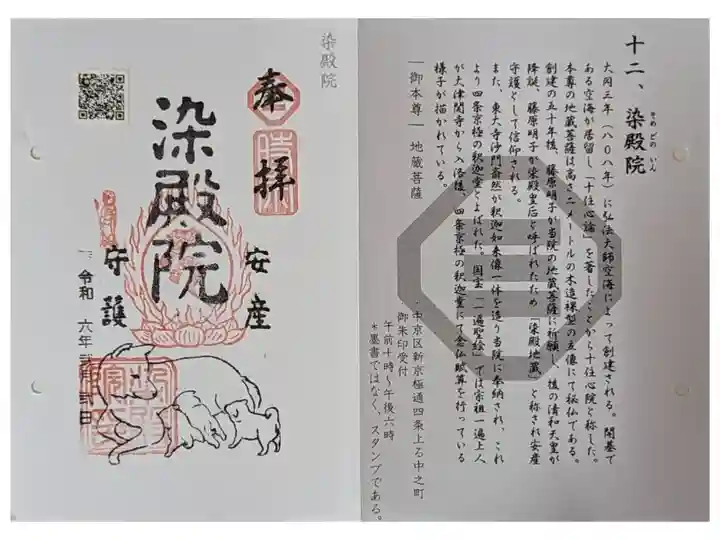 十二、染殿院
そめどのいん
大同三年（八〇八年）に弘法大師空海によって創建される。開基で
ある空海が居留し「十住心論」を著したことから十住心院と称した。
本尊の地蔵菩薩は高さ二メートルの木造裸型の立像にて秘仏である。
創建の五十年後、藤原明子が当院の地蔵菩薩に祈願し、後の清和天皇が
降誕、藤原明子が染殿皇后と呼ばれたため「染殿地蔵」と称され安産
守護として信仰される。
また、東大寺沙門奝然が釈迦如来像一体を造り当院に奉納され、これ
より四条京極の釈迦堂とよばれた。国宝「一遍聖絵」では宗祖一遍上人
が大津関寺から入洛後、四条京極の釈迦堂にて念仏賦算を行っている
様子が描かれている。
―御本尊― 地蔵菩薩
・中京区新京極通四条上る中之町
御朱印受付
午前十時〜午後六時
＊墨書ではなく、スタンプである。
染殿院
奉拝
染殿院
安産
守護
令和 六年